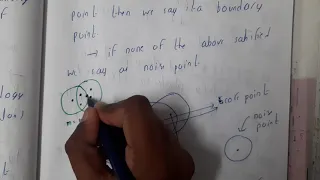 point then we say it a boundary
point
→ if none of the above satisfied
we say a noise point.
core point
noise
point